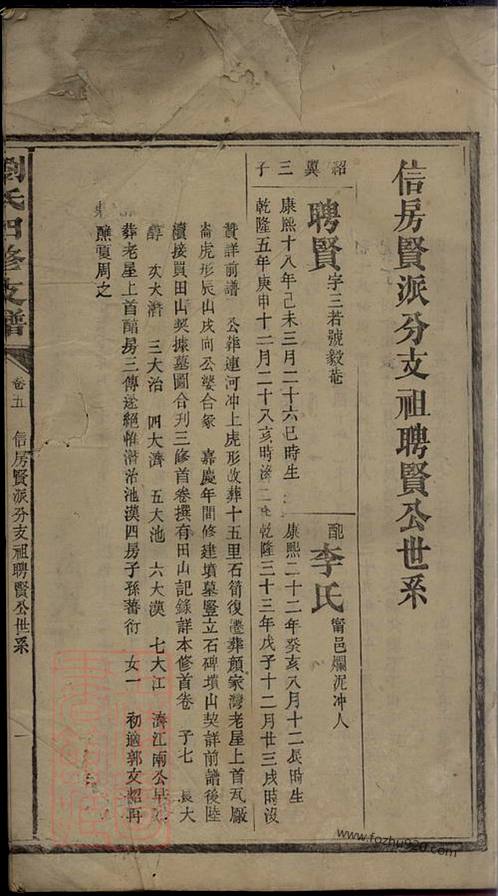 信房賢派分支祖聘賢公世系
紹翼三子
聘賢字三若號毅菴
康熙十八年己未三月二十六巳時生
乾隆五年庚申十二月二十八亥時沒
配李氏甯邑爛泥冲人
康熙二十二年癸亥八月十二辰時生
乾隆三十三年戊子十二月廿三戌時沒
贊詳前譜 公葬連河冲上虎形改葬十五里石筍復遷葬顏家灣老屋上首瓦廠
崙虎形辰山戌向公婆合冢 嘉慶年間修建墳墓豎立石碑墳山契詳前譜後陸
續接買田山契據墓圖合刋三修首卷撰有田山記錄詳本修首卷 子七 長大
醇 次大潛 三大治 四大濟 五大池 六大漢 七大江 濟江兩公早
葬老屋上首醇房三傳遂絕惟潛治池漢四房子孫蕃衍 女一 初適郭文韶再
醮夏周之
劉氏四修支譜
卷五 信房賢派分支祖聘賢公世系 一
www.fozhu920.com